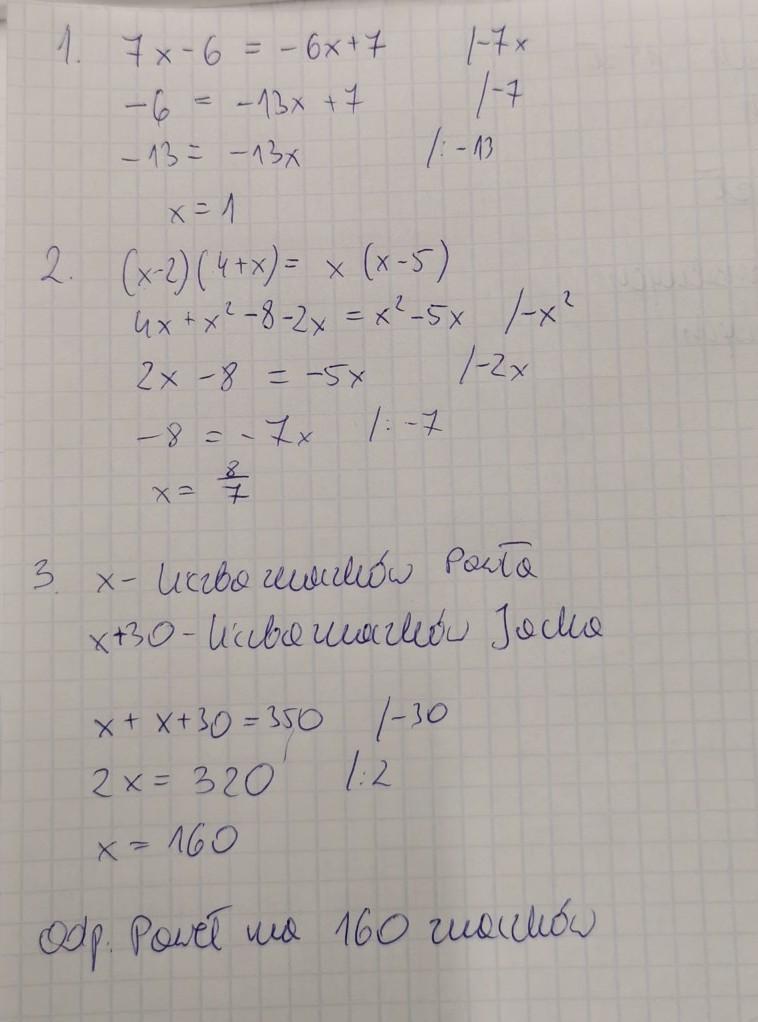 1. 7x-6 = -6x+7 /-7x
-6 = -13x +7 /-7
-13 = -13x /:-13
x = 1
2. (x-2)(4+x) = x (x-5)
4x + x² -8-2x = x² -5x /-x²
2x -8 = -5x /-2x
-8 = -7x /: -7
x = 8/7
3. x - liczba znaczków Pawła
x+30 - liczba znaczków Jacka
x + x+30 = 350 /-30
2x = 320 /:2
x = 160
Odp. Paweł ma 160 znaczków